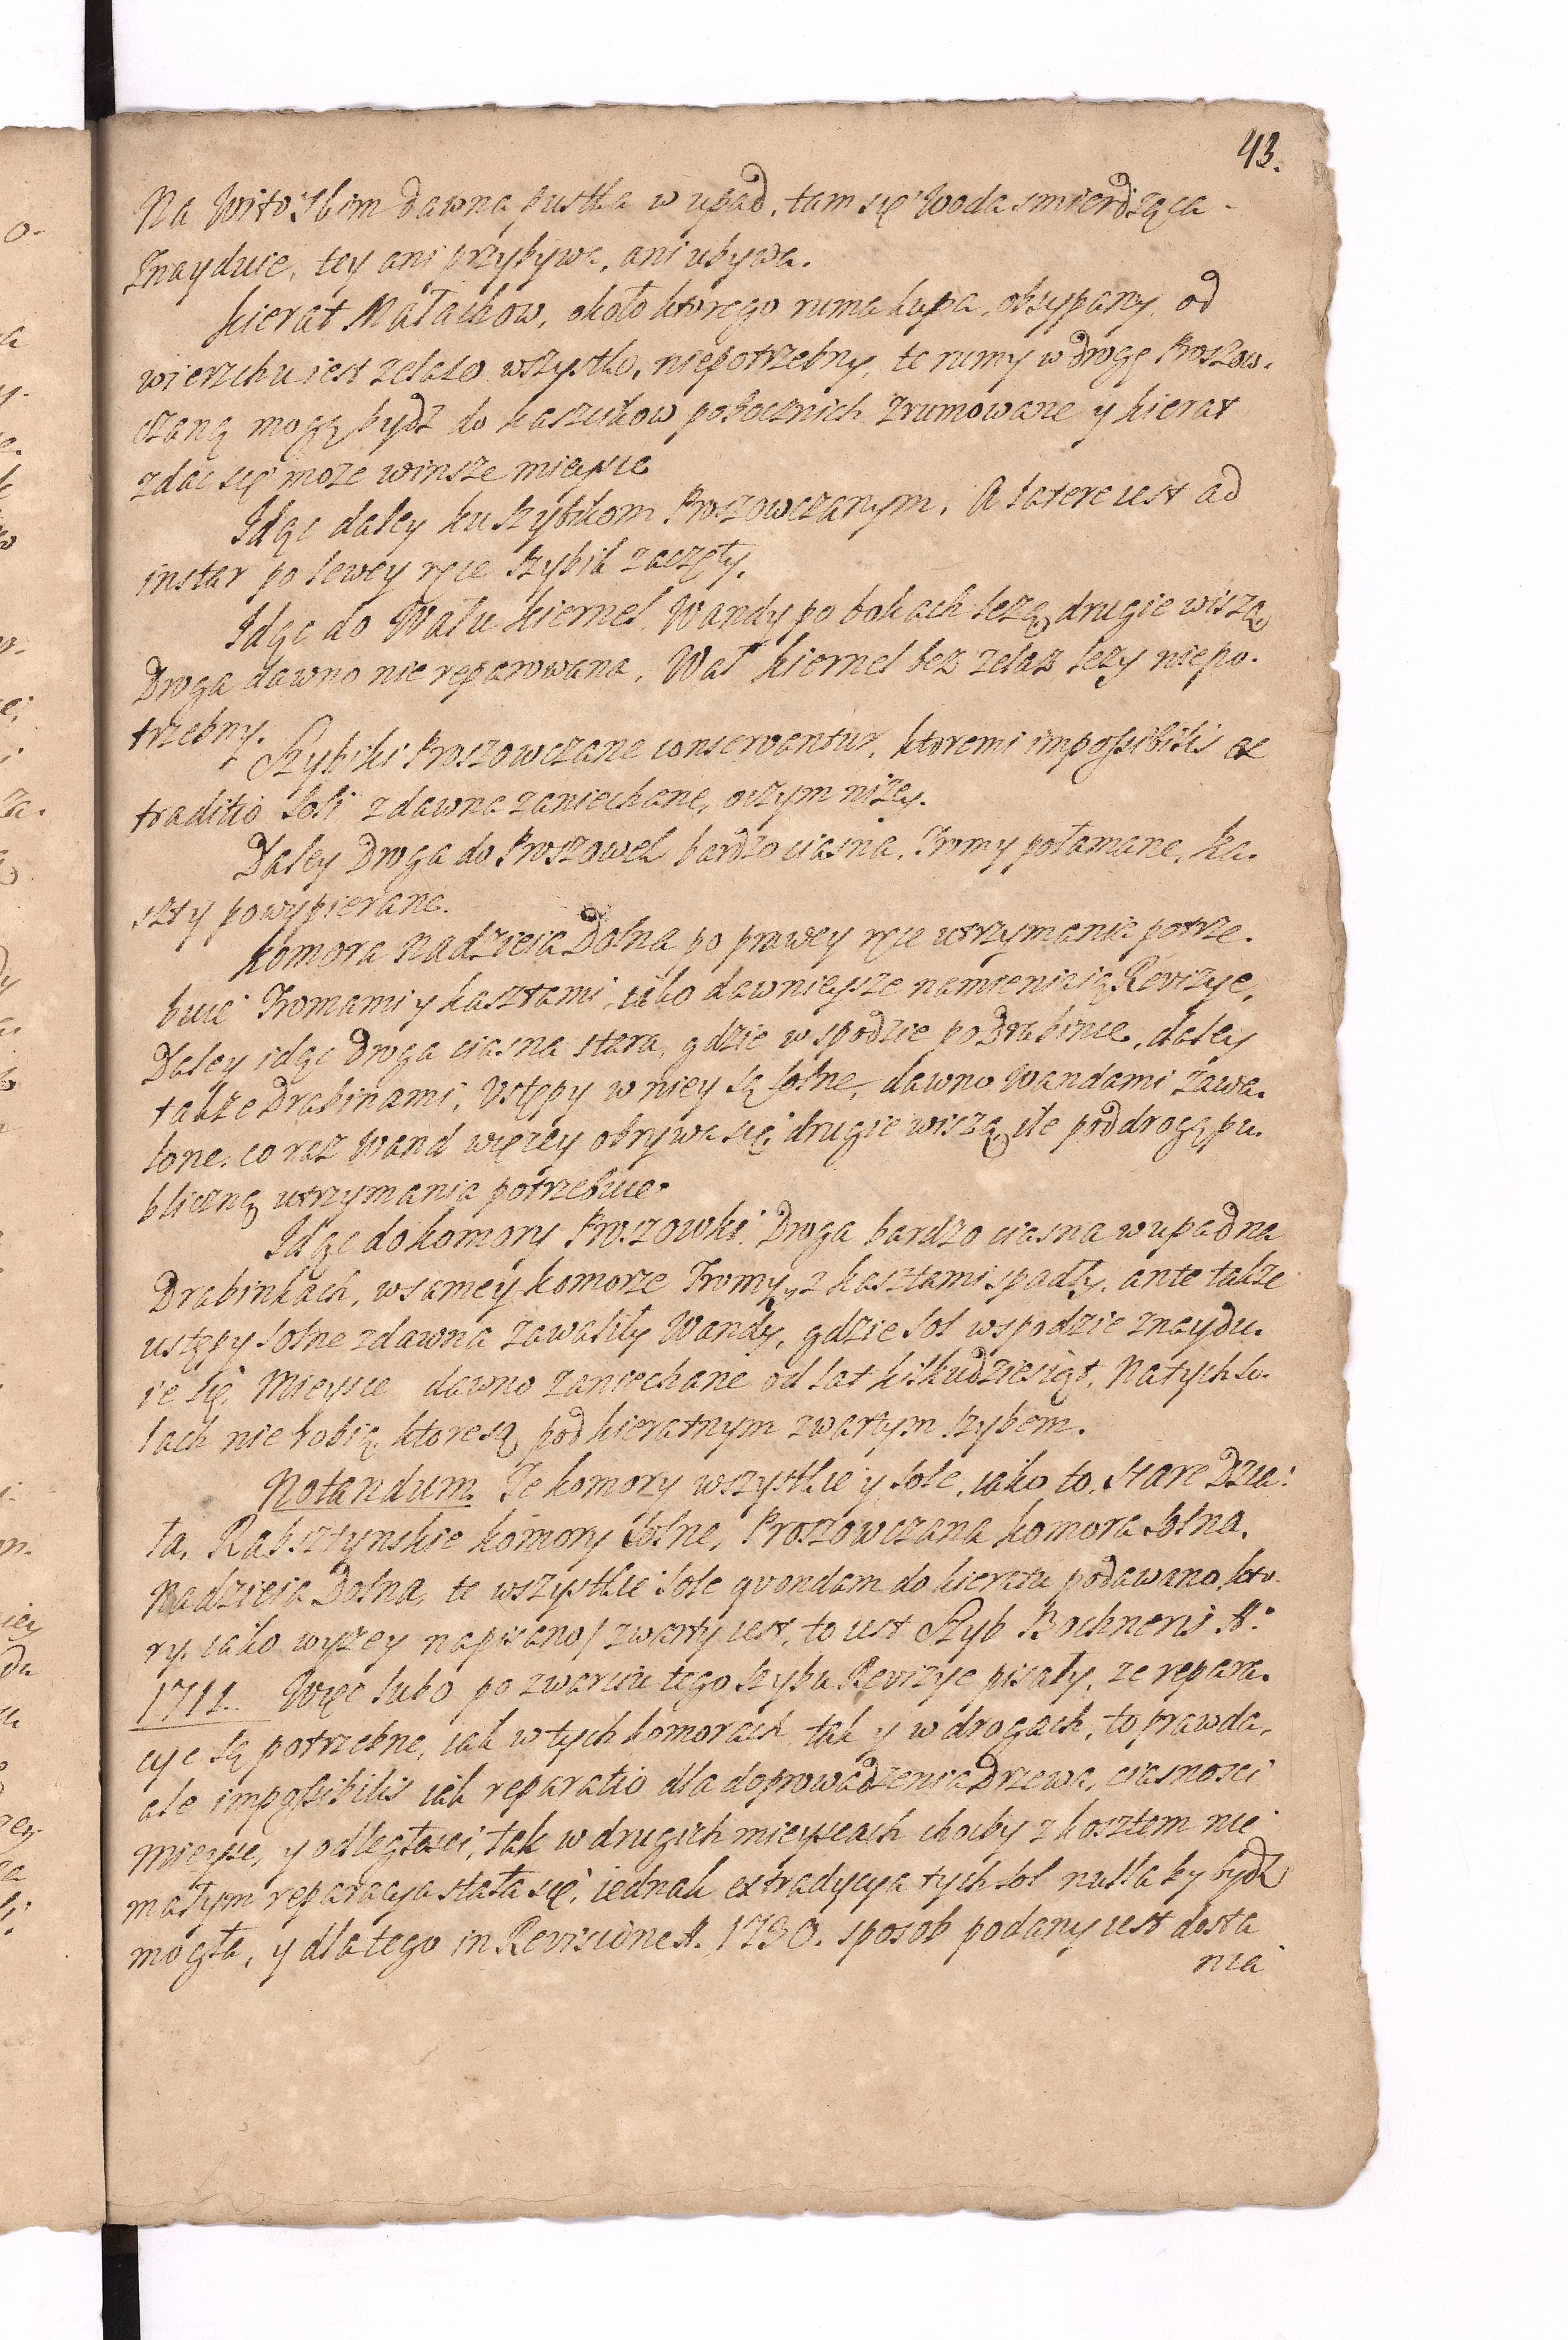 43.
Na Witoslim dawna pustka w upad, tam się Woda smierdząca
Znayduie, tey ani przybywa, ani ubywa.
Kierat Małachow, około ktorego ruma kupa, obsypany, od
wierzchu iest zelazo wszystko, niepotrzebny, te rumy w drogę Proszow-
czaną mogą bydz do kasztow pobocznich zrumowane y kierat
zdac się moze w insze mieysce
Idąc daley ku szybikom Proszowczanym, A latere iest ad
instar po lewey ręce Szybik zaczęty.
Idąc do Wału Kiernel Wandy po bokach lezą, drugie wiszą
Droga dawno nie reparowana, Wał Kiernel bez zelaz lezy niepo-
trzebny.
Szybiki Proszowczane conservantur, ktoremi impossibilis ex
traditio Soli zdawna zaniechane, o czym nizey.
Daley Droga do Proszowek bardzo ciasna, Tromy połamane, ka-
szty powypierane.
Komora Nadzieia Dolna po prawey ręce utrzymania potrze-
buie Tromami y kasztami, iako dawnieysze namieniaią Revizye,
Daley idąc Droga ciasna stara, gdzie w spodzie po Drabince, daley
takze Drabinami, Ustępy w niey są solne, dawno Wandami zawa-
lone, co raz Wand więcey obrywa się, drugie wiszą, ile pod drogą pu-
bliczną utrzymania potrzebuie.
Idąc do komory Proszowki Droga bardzo ciasna w upad na
Drabinkach, w samey komorze Tromy z kasztami spadły, ante takze
ustępy solne zdawna zawaliły Wandy, gdzie sol w spodzie znaydu-
ie się, Mieysce dawno zaniechane od lat kilkudziesiąt. Na tych So-
lach nie robią, ktore są pod kieratnym zwartym szybem.
Notandum. Te komory wszystkie y Sole, iako to, Stare Dzia-
ła, Rabsztynskie komory Solne, Proszowczana komora Solna,
Nadzieia Dolna, te wszystkie Sole quondam do kieratu podawano, kto-
ry, iako wyzey napisano/ zwarty iest, to iest Szyb Bochneris Ao
1711. Więc lubo po zwarciu tego szybu Revizye pisały, ze repara-
cye są potrzebne, iak w tych komorach, tak y w drogach, to prawda,
ale impossibilis iak reparatio dla doprowadzenia Drzewa, ciasnosci
mieysc, y odległosci, tak w drugich mieyscach choćby z kosztem nie
małym reparacya stała się, iednak extradycya tych sol nulla by bydz
mogła, y dlatego in Revisione A. 1730. sposob podany iest dosta
nia